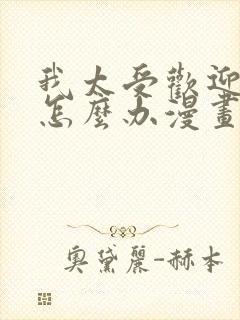 我太受歡迎
怎麼办漫畫
奧黛麗-赫本